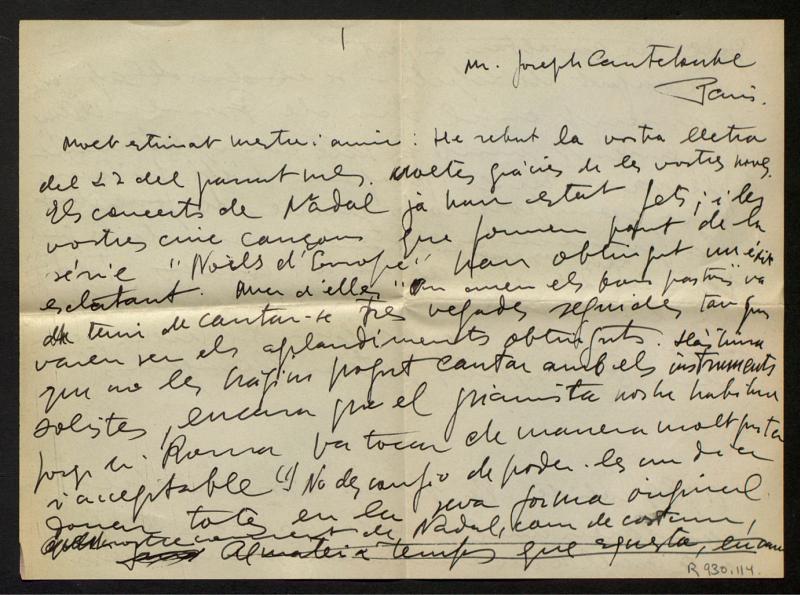 1
M. Joseph Canteloube
Paris.
Molt estimat mestre i amic: He rebut la vostra lletra
del 27 del passat mes. Moltes gràcies de les vostres noves.
Els concerts de Nadal ja han estat fets; i les
vostres cinc cançons que formen part de la
série "Noëls d'Europe" han obtingut un éxit
esclatant. Una d'elles "On anen els bons pastors" va
tenir de cantar-se tres vegades seguides tan grans
varen ser els aplaudiments obtinguts. Llàstima
que no les hàgim pogut cantar amb els instruments
solistes, encara que el pianista nostre habitual
Roma va tocar de manera molt justa
i acceptable (1) No desconfio de poder-les un dia
donar totes en la seva forma original.
concert de Nadal, com de costum,
Al mateix temps que aquesta, en
R 930.114.